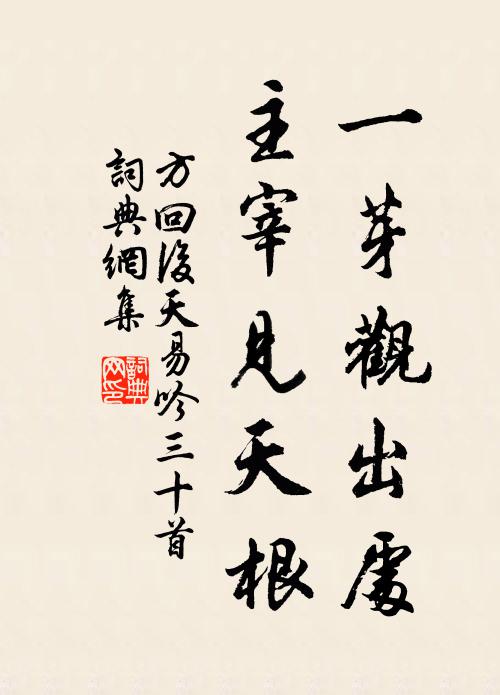 一芽觀出處
主宰見天根
方回後天易吟三十首
詞典網集
詞典網印